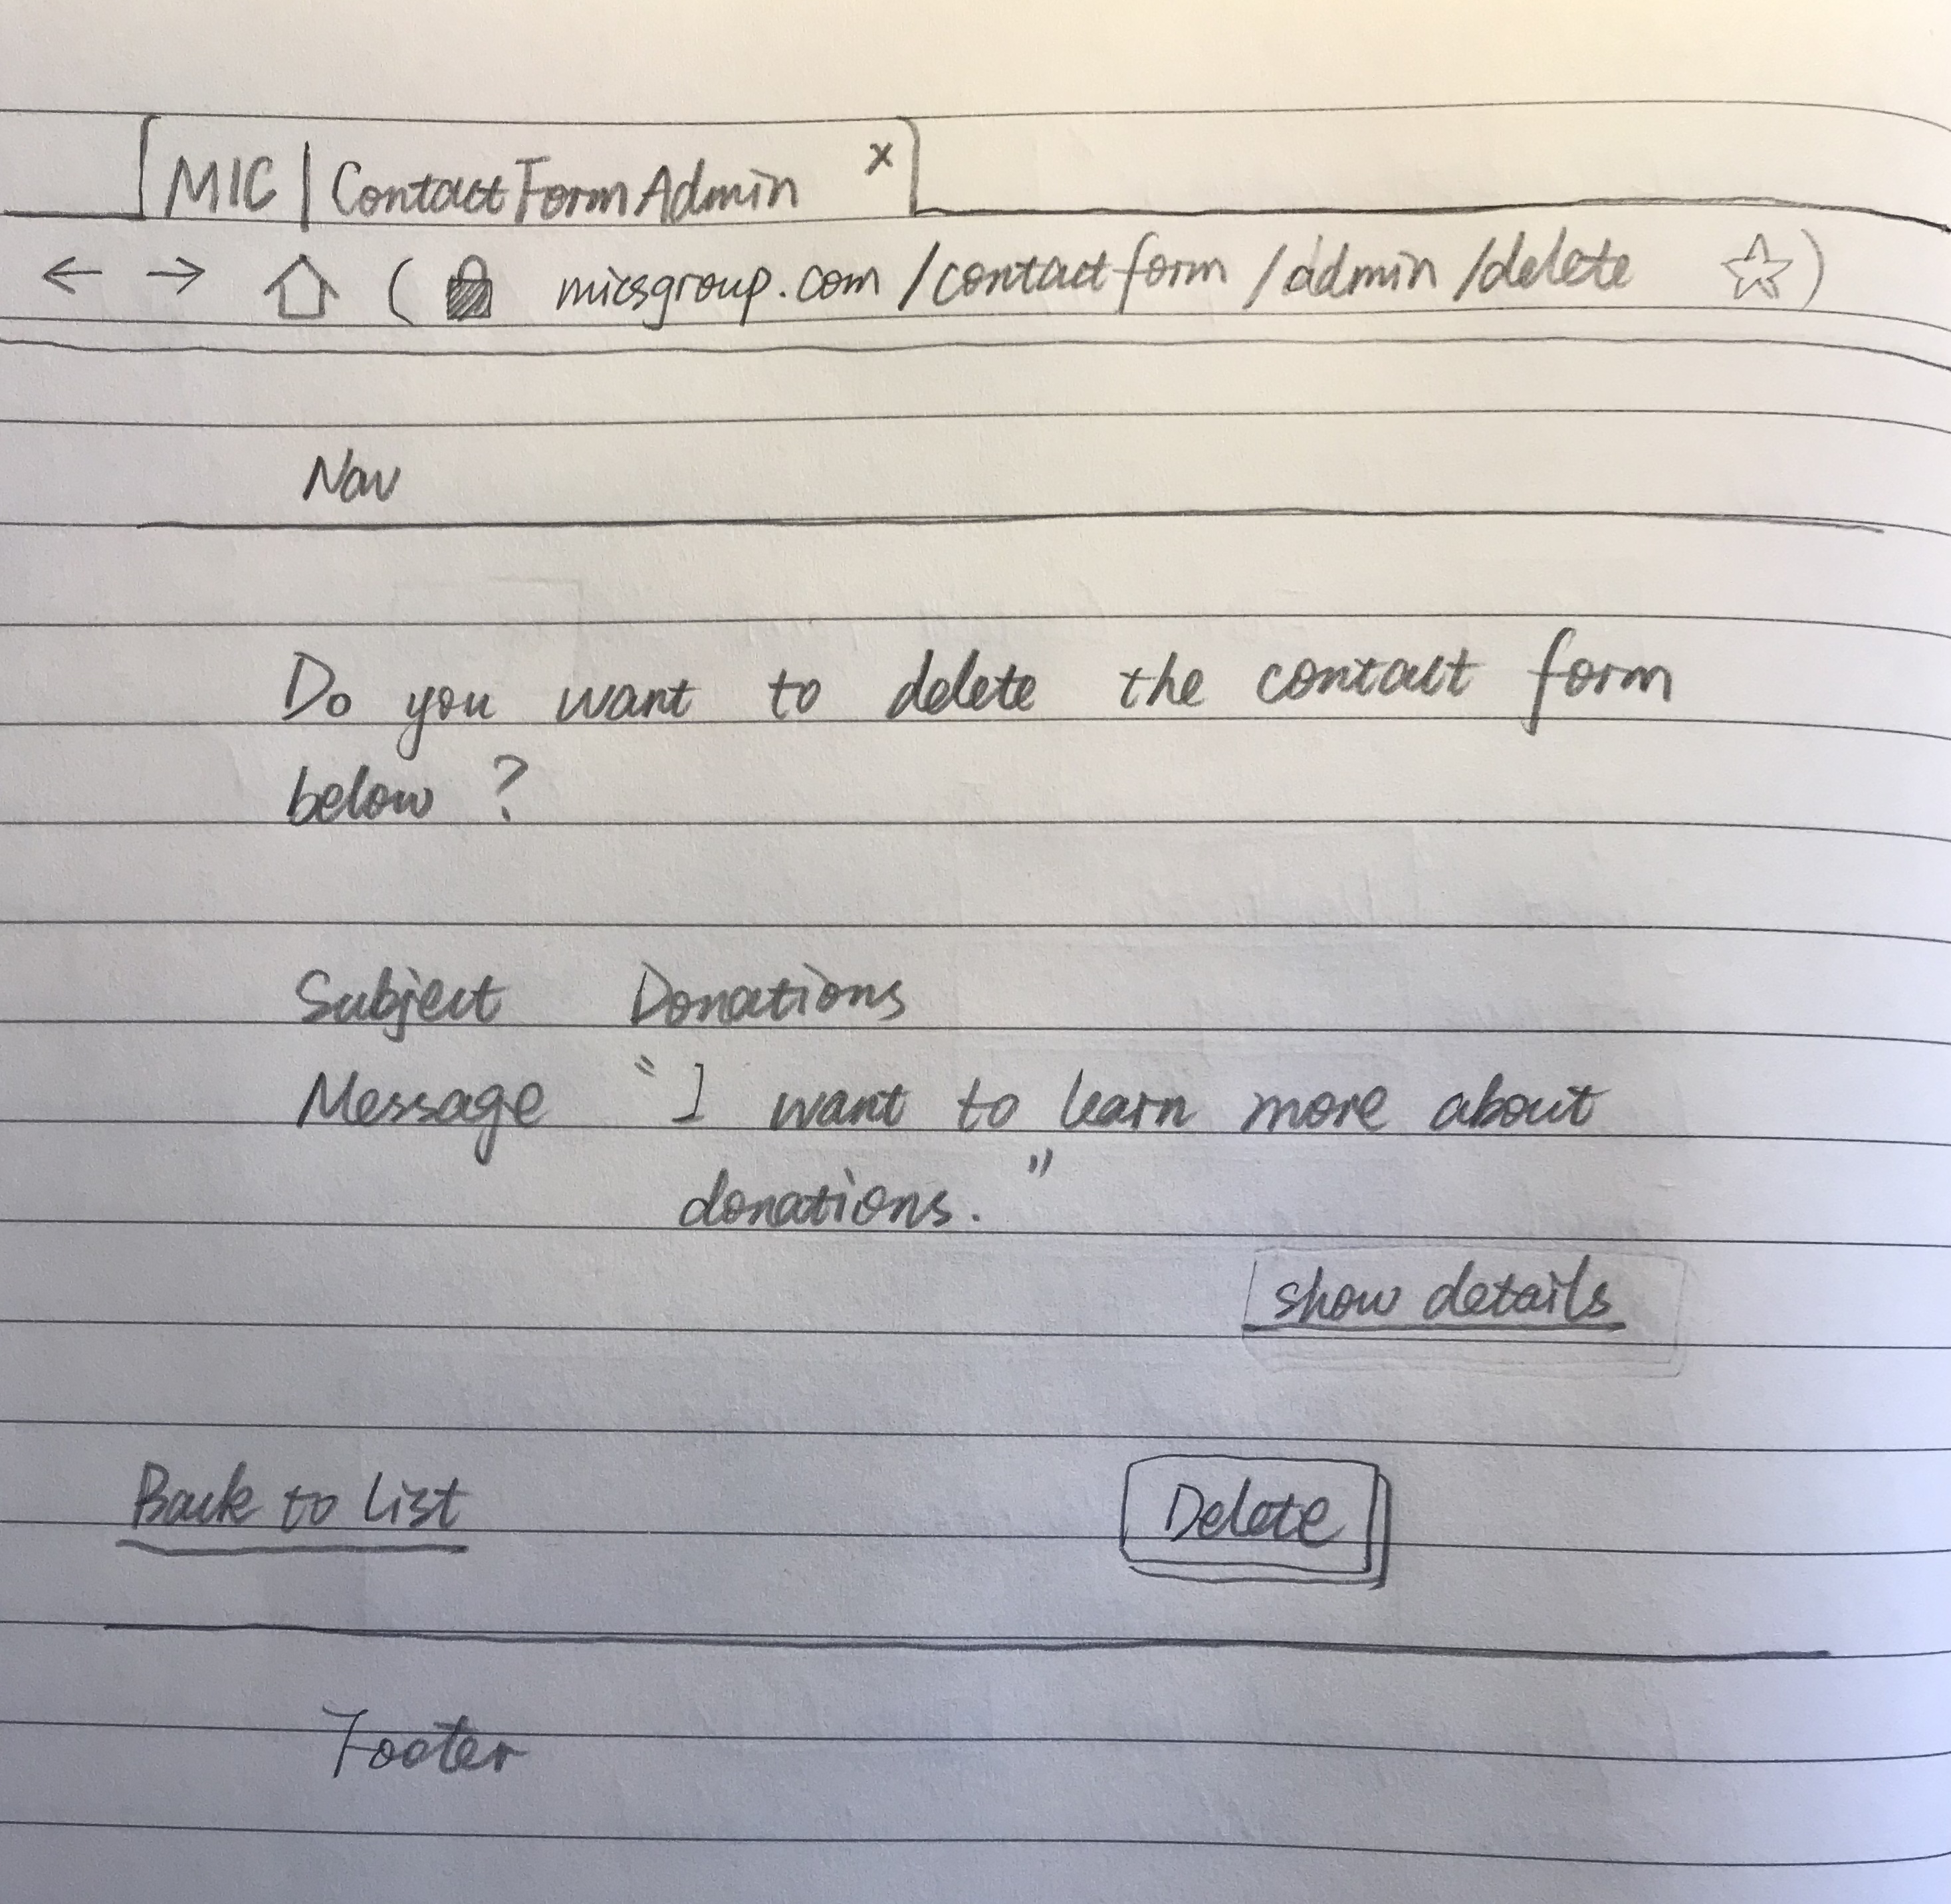 MIC | ContactFormAdmin x
micsgroup.com/contactform/admin/delete
Nav
Do you want to delete the contact form
below ?
Subject Donations
Message "I want to learn more about
donations."
show details
Back to List Delete
Footer